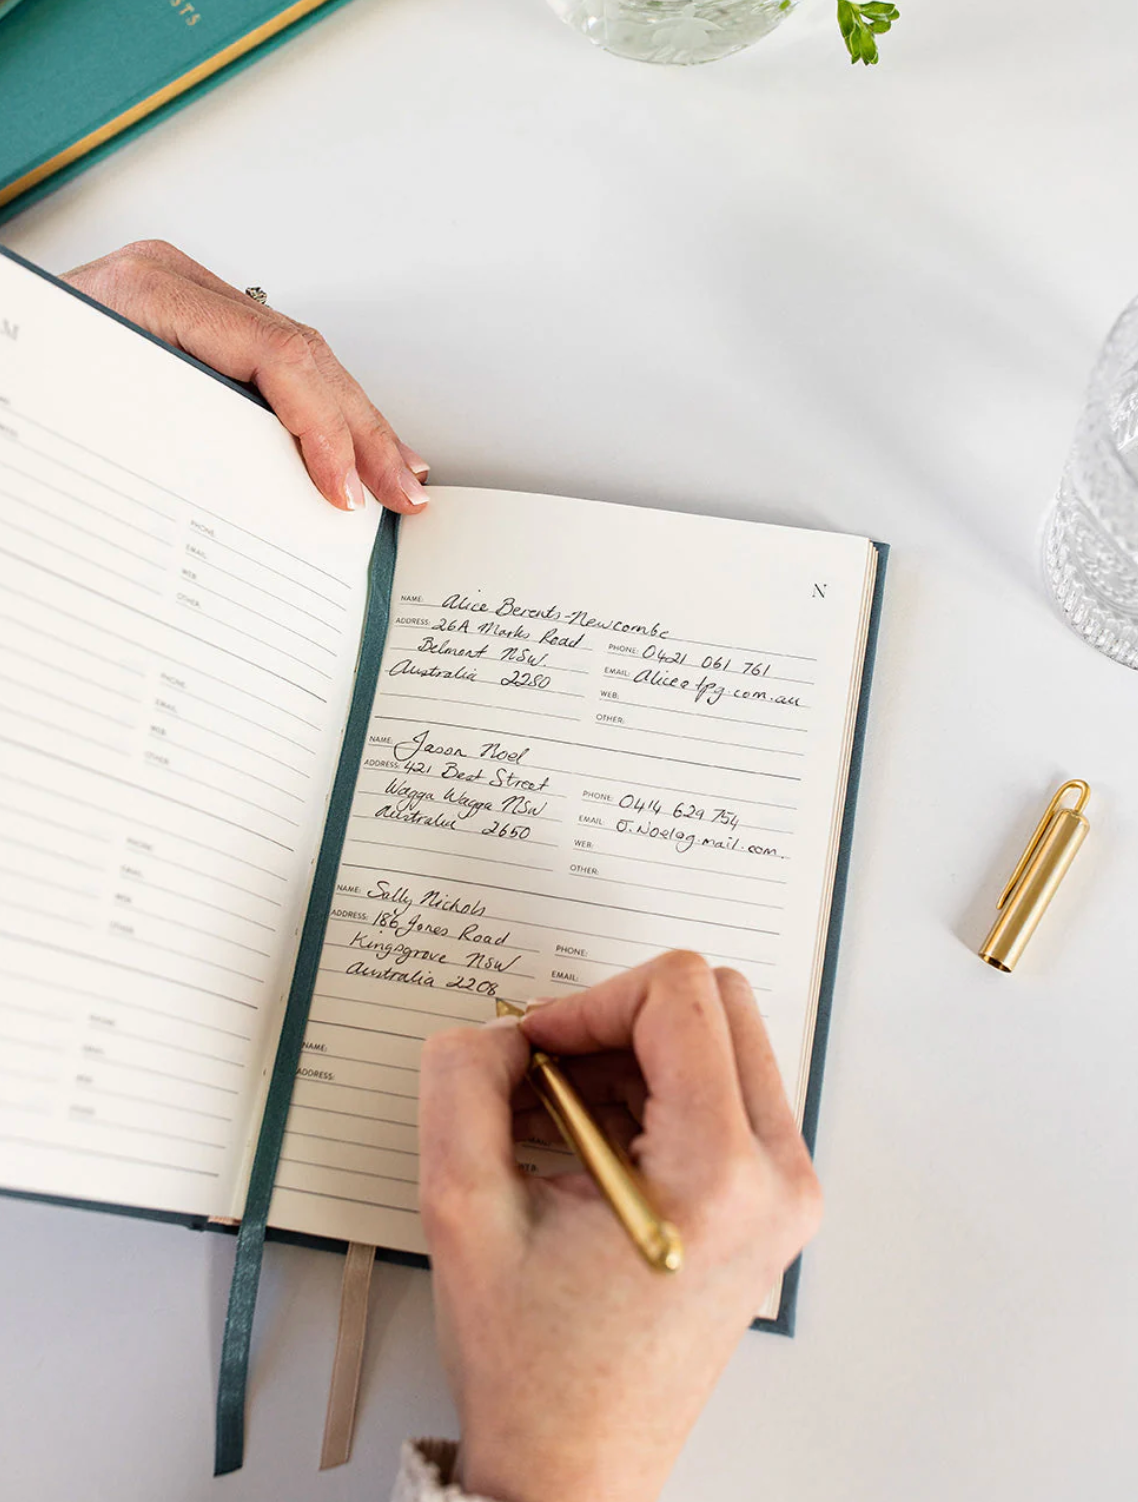 STS
M
PHONE:
EMAIL:
WEB:
OTHER:
PHONE:
EMAIL:
WEB:
OTHER:
PHONE:
EMAIL:
WEB:
OTHER:
PHONE:
EMAIL:
WEB:
OTHER:
N
NAME: Alice Berents-Newcombe
ADDRESS: 26A Marks Road
Belmont NSW.
Australia 2280
PHONE: 0421 061 761
EMAIL: Alice@tpg.com.au
WEB:
OTHER:
NAME: Jason Noel
ADDRESS: 421 Best Street
Wagga Wagga NSW
Australia 2650
PHONE: 0414 629 754
EMAIL: J.Noel@gmail.com.
WEB:
OTHER:
NAME: Sally Nichols
ADDRESS: 186 Jones Road
Kingsgrove NSW
Australia 2208
PHONE:
EMAIL:
NAME:
ADDRESS: